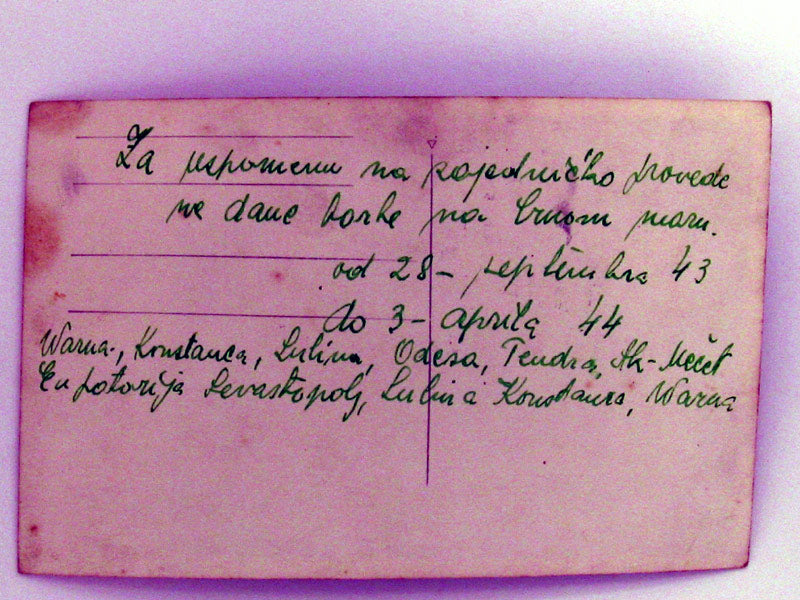 Za uspomenu na zajedničko provede
ne dane borbe na Crnom moru.
od 28 – septembra 43
do 3 – aprila 44
Warna, Konstanca, Sulina, Odesa, Tendra, Ak-Mečet
Eupatorija Sevastopolj, Sulina Konstanca, Warna